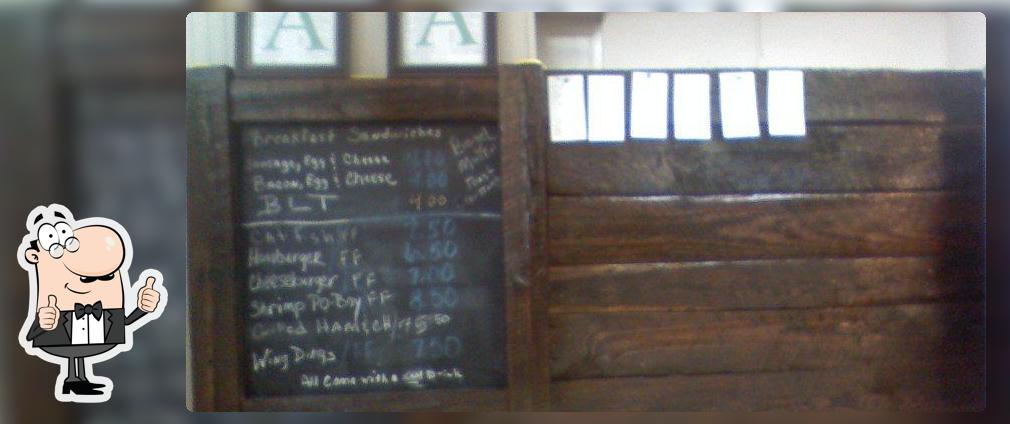 A A
Breakfast Sandwiches
Egg & Cheese
Bacon, Egg & Cheese 4.00
BLT 4.00
Catfish FF 7.50
Hamburger FF 6.50
Cheeseburger FF 7.00
Shrimp Po-Boy FF 8.50
Grilled Ham & Ch
Wing Dings 7.50
All Come with a Drink